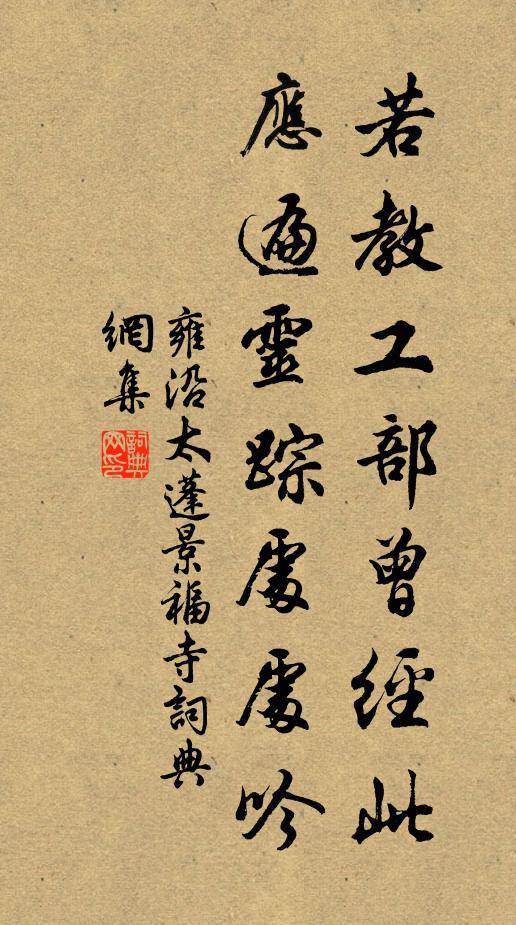 若教工部曾經此
應遍靈踪處處吟
雍沿太蓬景福寺詞典
網集
詞典網印